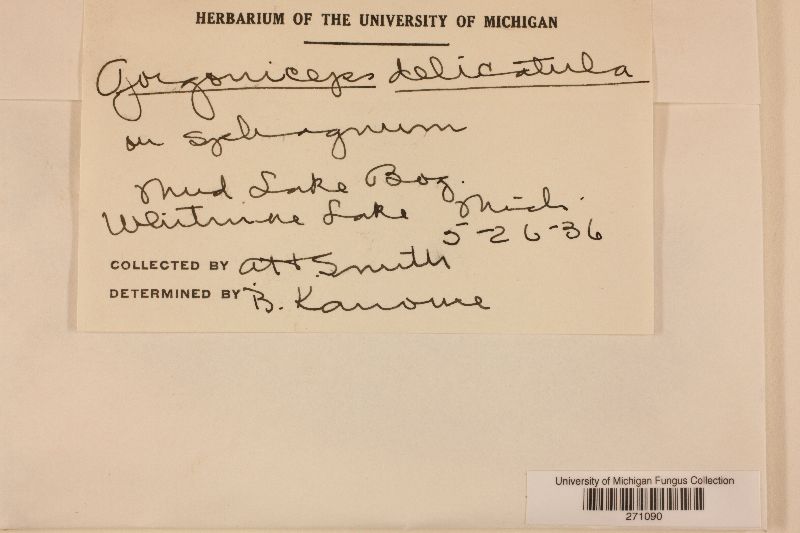 HERBARIUM OF THE UNIVERSITY OF MICHIGAN
Gorgoniceps delicatula
on sphagnum
Mud Lake Bog.
Whitmore Lake Mich.
5-26-36
COLLECTED BY A.H. Smith
DETERMINED BY B. Kanouse
University of Michigan Fungus Collection
271090